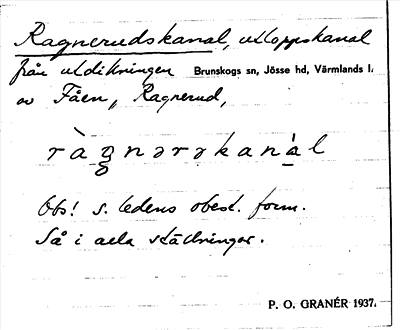 Ragnerudskanal, utloppskanal
från utdikningen Brunskogs sn, Jösse hd, Värmlands l.
av Fåen, Ragnerud,
ràgnərəkanàl
Obs! s. ledens obest. form.
Så i alla ställningar.
P. O. GRANÉR 1937.